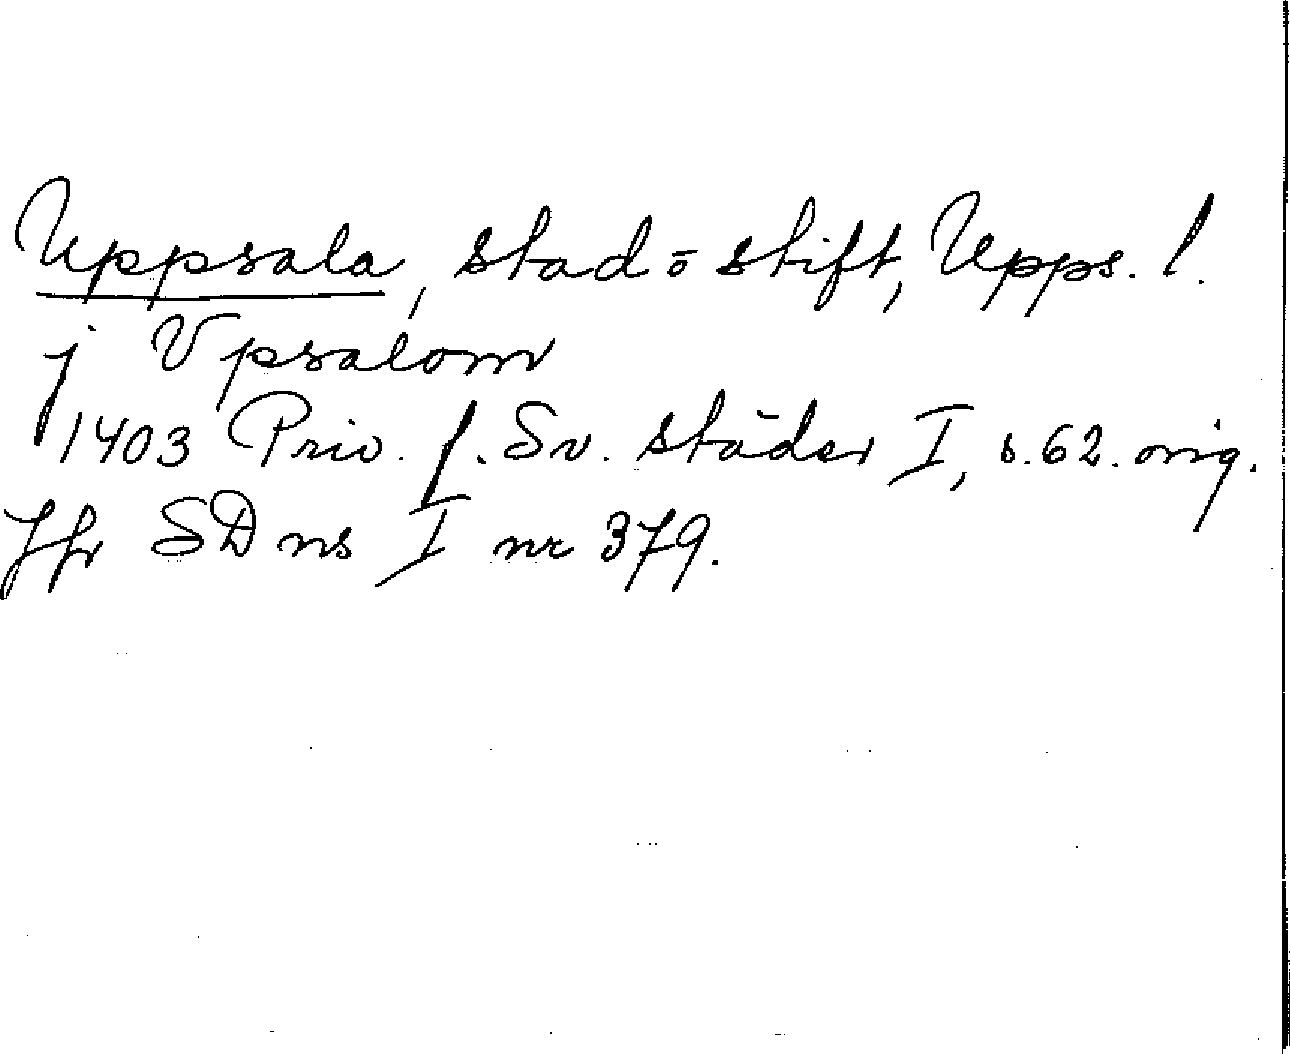 Uppsala, stad o stift, Upps. l.
j Vpsalom
1403 Priv. f. Sv. städer I, s. 62. orig.
Jfr SD ns I nr 379.